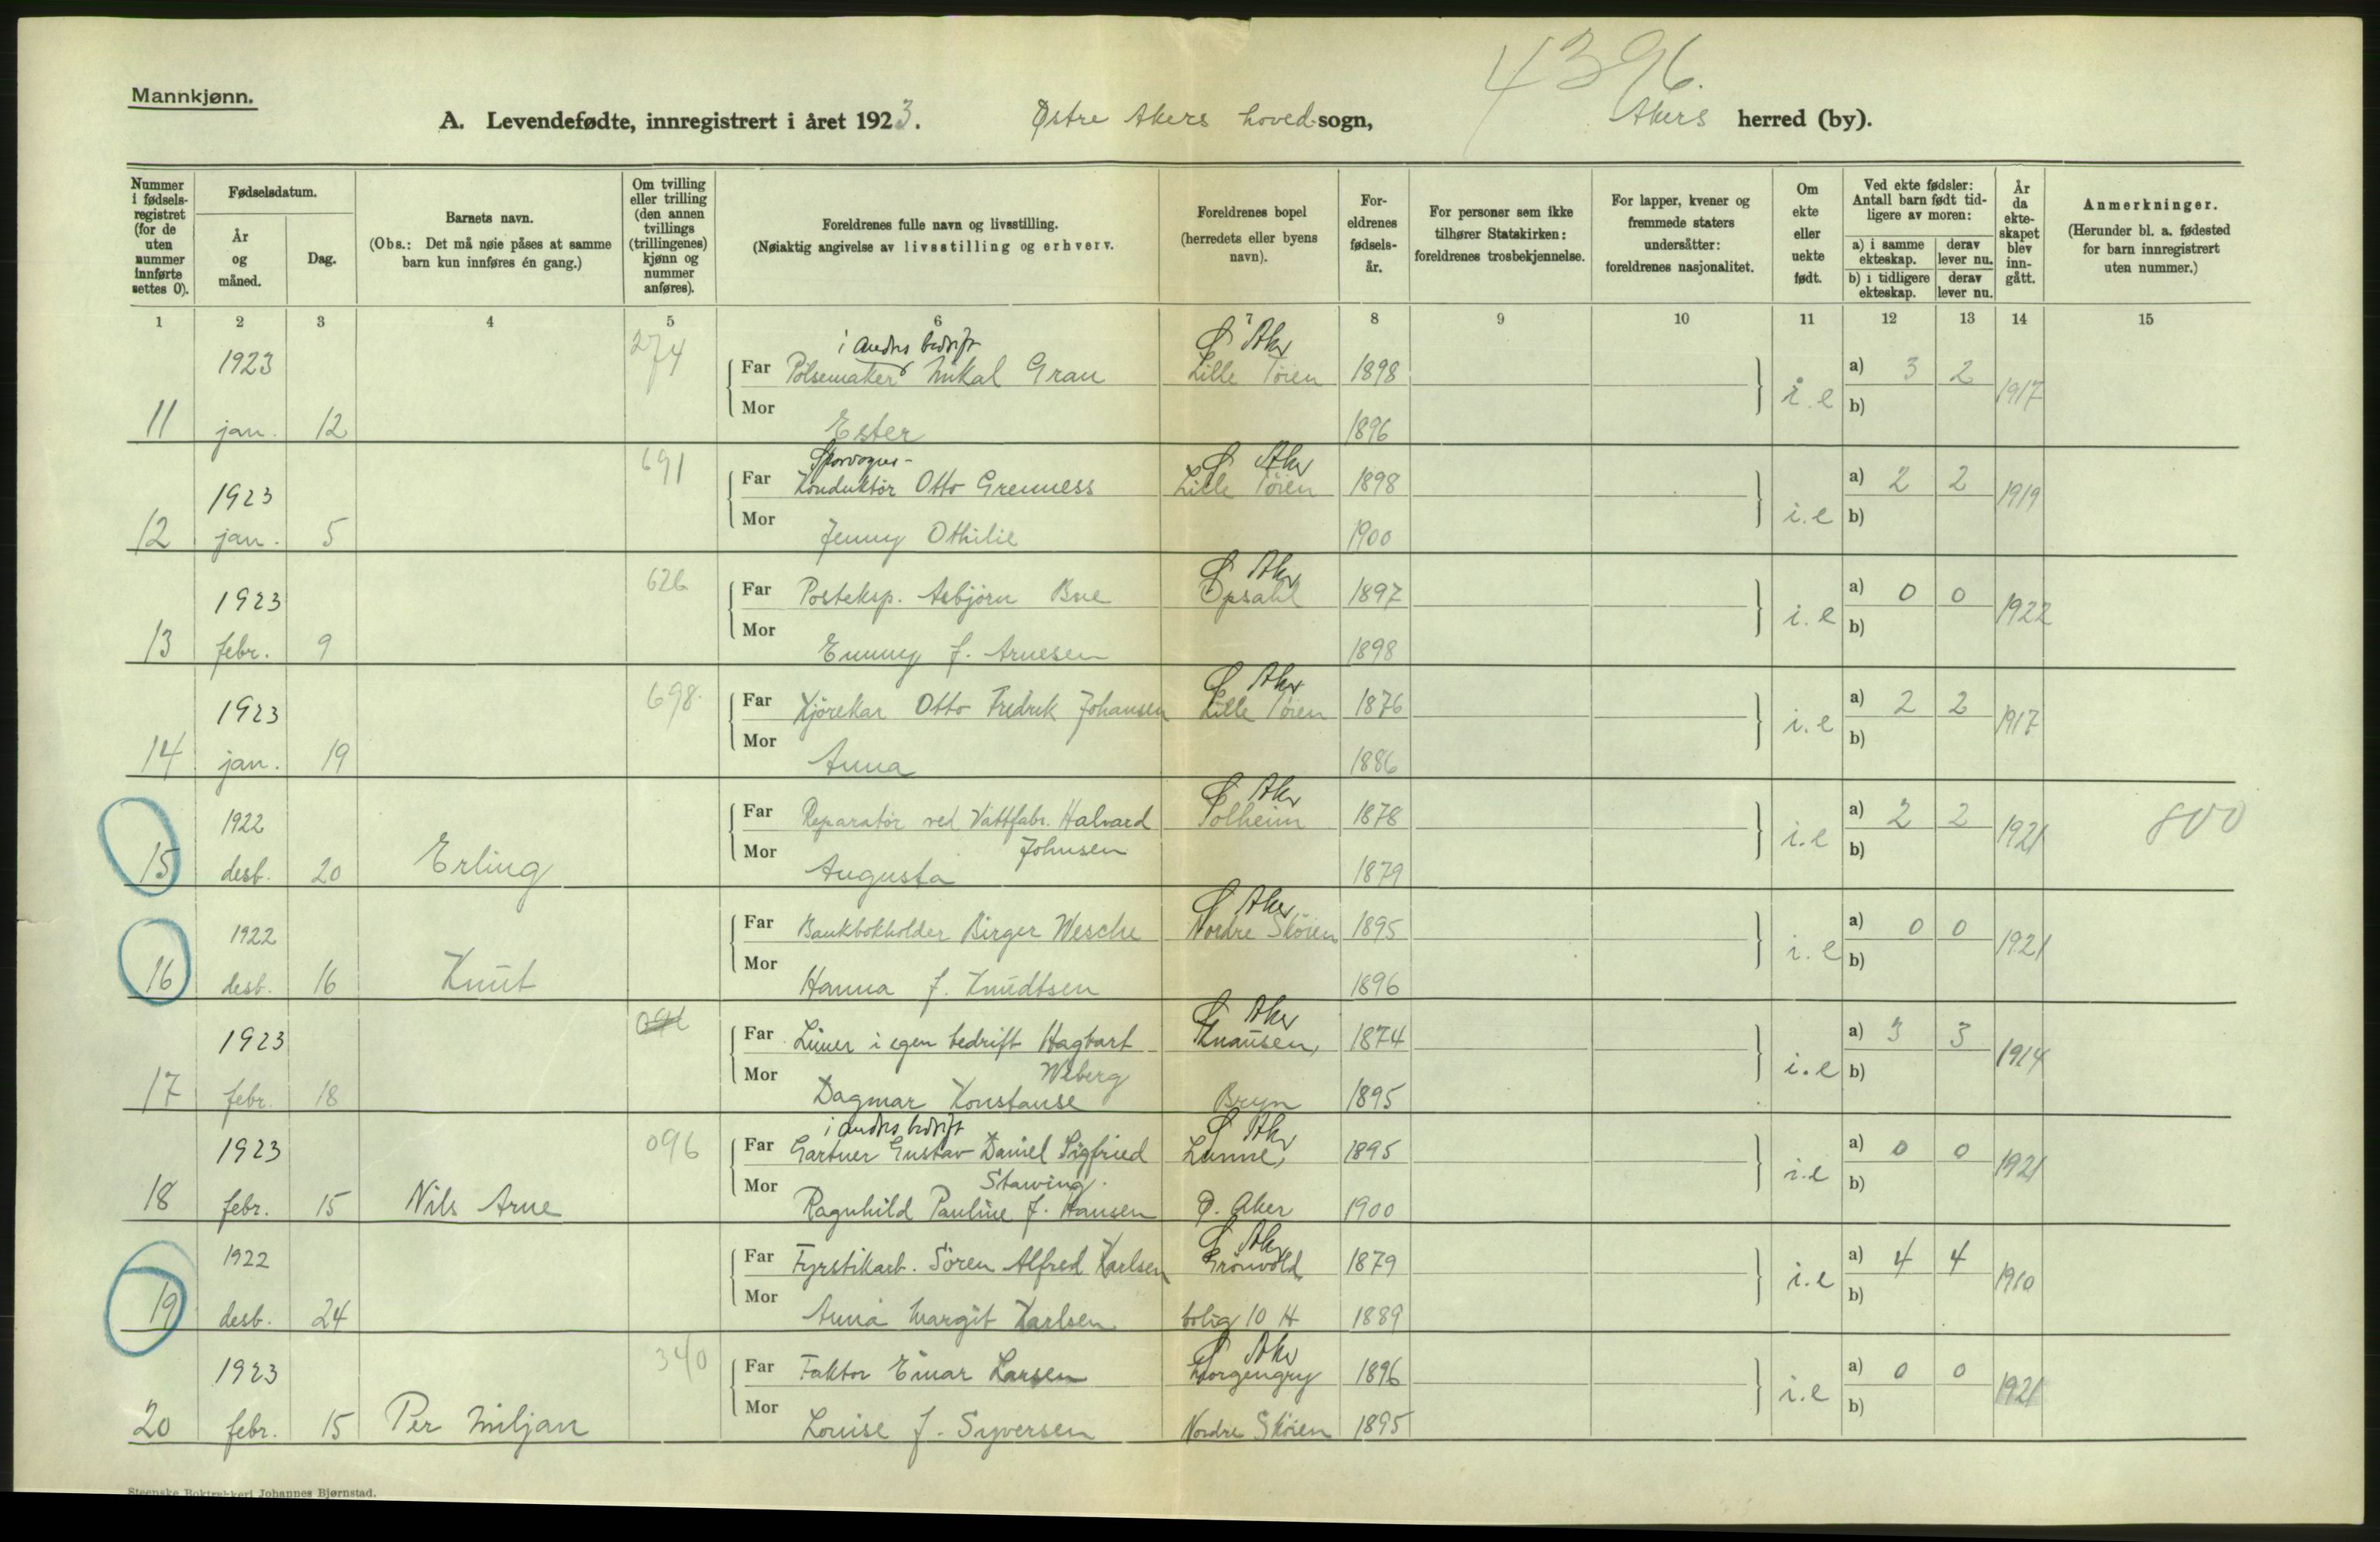 4396.
Mannkjønn.
A. Levendefødte, innregistrert i året 1923. Østre Akers hoved-sogn, Akers herred (by).
Nummer i fødselsregistret (for de uten nummer innførte settes 0).
Fødselsdatum.
År og måned.
Dag.
Barnets navn.
(Obs.: Det må nøie påses at samme barn kun innføres én gang.)
Om tvilling eller trilling (den annen tvillings (trillingenes) kjønn og nummer anføres).
Foreldrenes fulle navn og livsstilling.
(Nøiaktig angivelse av livsstilling og erhverv.
Foreldrenes bopel (herredets eller byens navn).
Foreldrenes fødselsår.
For personer som ikke tilhører Statskirken: foreldrenes trosbekjennelse.
For lapper, kvener og fremmede staters undersåtter: foreldrenes nasjonalitet.
Om ekte eller uekte født.
Ved ekte fødsler: Antall barn født tidligere av moren:
a) i samme ekteskap. derav lever nu.
b) i tidligere ekteskap. derav lever nu.
År da ekteskapet blev inngått.
Anmerkninger.
(Herunder bl. a. fødested for barn innregistrert uten nummer.)
1 2 3 4 5 6 7 8 9 10 11 12 13 14 15
274 i andres bedrift Ø Aker
1923 Far Pølsemaker Mikal Grau Lille Tøien 1898 i.e a) 3 2 1917
11 jan. 12 Mor Ester 1896 b)
691 Sporvogns- Ø Aker
1923 Far Konduktør Otto Grenness Lille Tøien 1898 i.e a) 2 2 1919
12 jan. 5 Mor Jenny Othilie 1900 b)
626 Ø Aker
1923 Far Posteksp. Asbjørn Bue Opsahl 1897 i.e a) 0 0 1922
13 febr. 9 Mor Emmy f. Arnesen 1898 b)
698 Ø Aker
1923 Far Kjørekar Otto Fredrik Johansen Lille Tøien 1876 i.e a) 2 2 1917
14 jan. 19 Mor Anna 1886 b)
Ø Aker
1922 Far Reparatør ved Vattfabr. Halvard Johnsen Solheim 1878 i.e a) 2 2 1921 800
15 desb. 20 Erling Mor Augusta 1879 b)
Ø Aker
1922 Far Bankbokholder Birger Wesche Nordre Skøien 1895 i.e a) 0 0 1921
16 desb. 16 Knut Mor Hanna f. Knudtsen 1896 b)
Ø Aker
1923 Far Limer i egen bedrift Hagbart Wiberg Knausen, 1874 i.e a) 3 3 1914
17 febr. 18 Mor Dagmar Konstanse Bryn 1895 b)
096 i andres bedrift Ø Aker
1923 Far Gartner Gustav Daniel Sigfried Stawing. 1895 i.e a) 0 0 1921
18 febr. 15 Nils Arne Mor Ragnhild Pauline f. Hansen Ø. Aker 1900 b)
Ø Aker
1922 Far Fyrstikarb. Søren Alfred Karlsen Grønvold 1879 i.e a) 4 4 1910
19 desb. 24 Mor Anna Margit Karlsen bolig 10 H 1889 b)
340 Ø Aker
1923 Far Faktor Einar Larsen Morgengry 1896 i.e a) 0 0 1921
20 febr. 15 Per Miljan Mor Louise f. Syversen Nordre Skøien 1895 b)
Steenske Boktrykkeri Johannes Bjørnstad.